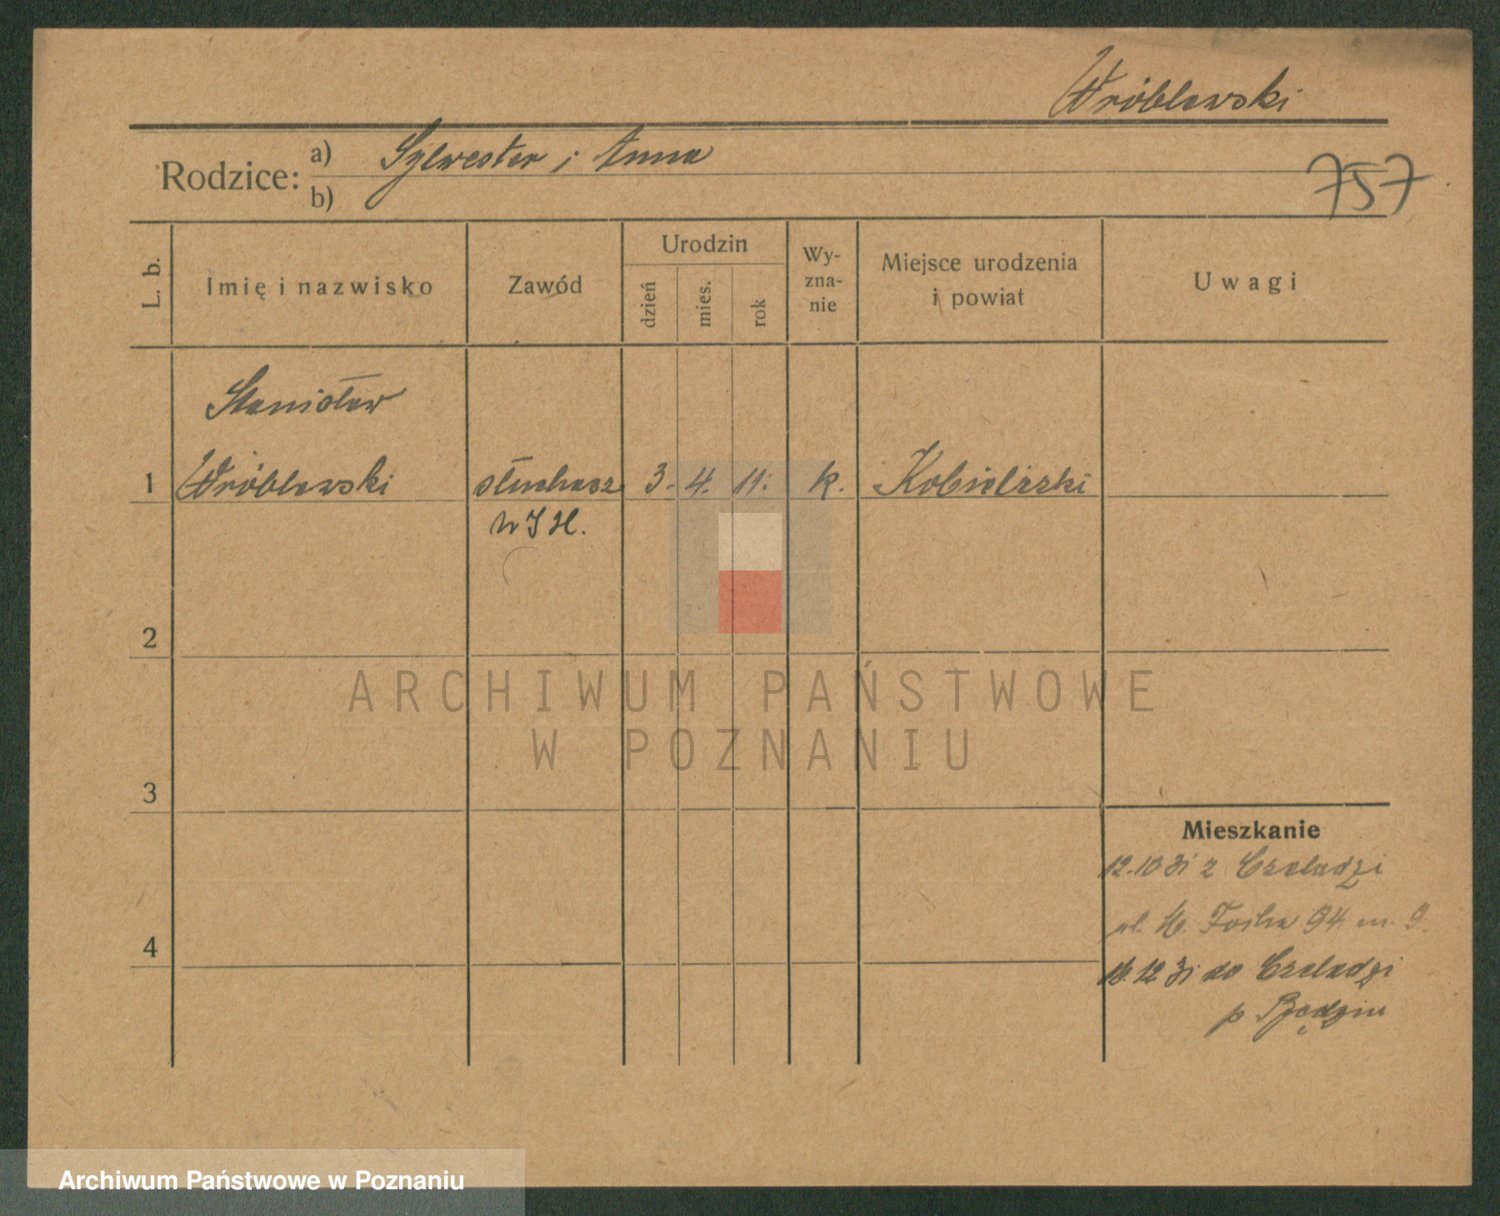 Wróblewski
Rodzice: a) Sylwester i Anna
b)
757
L. b.
Imię i nazwisko
Zawód
Urodzin
dzień
mies.
rok
Wy-
zna-
nie
Miejsce urodzenia
i powiat
Uwagi
Stanisław
1 Wróblewski słuchacz 3. 4. 11. k. Kobielszki
W S H.
2
3
4
Mieszkanie
12.10 31 z Czeladzi
ul. M. Focha 94 m. 9.
16.12 31 do Czeladzi
p Będzin
ARCHIWUM PAŃSTWOWE
W POZNANIU
Archiwum Państwowe w Poznaniu